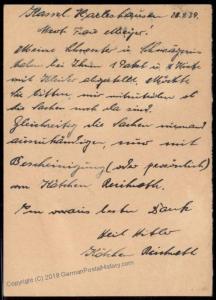 Kassel Harleshausen 28.8.39.
Wert Frau
Meine Schwester u. Schwägerin
haben bei Ihnen 1 Paket u. 1 Korb
mit Kleider abgestellt. Möchte
Sie bitten, mir mitzuteilen ob
die Sachen noch da sind.
Gleichzeitig die Sachen niemand
auszuhändigen, nur mit
Bescheinigung (oder persönlich)
von Käthchen
Im voraus besten Dank
Heil Hitler
Käthchen
Copyright (C) 2018 GermanPostalHistory.com